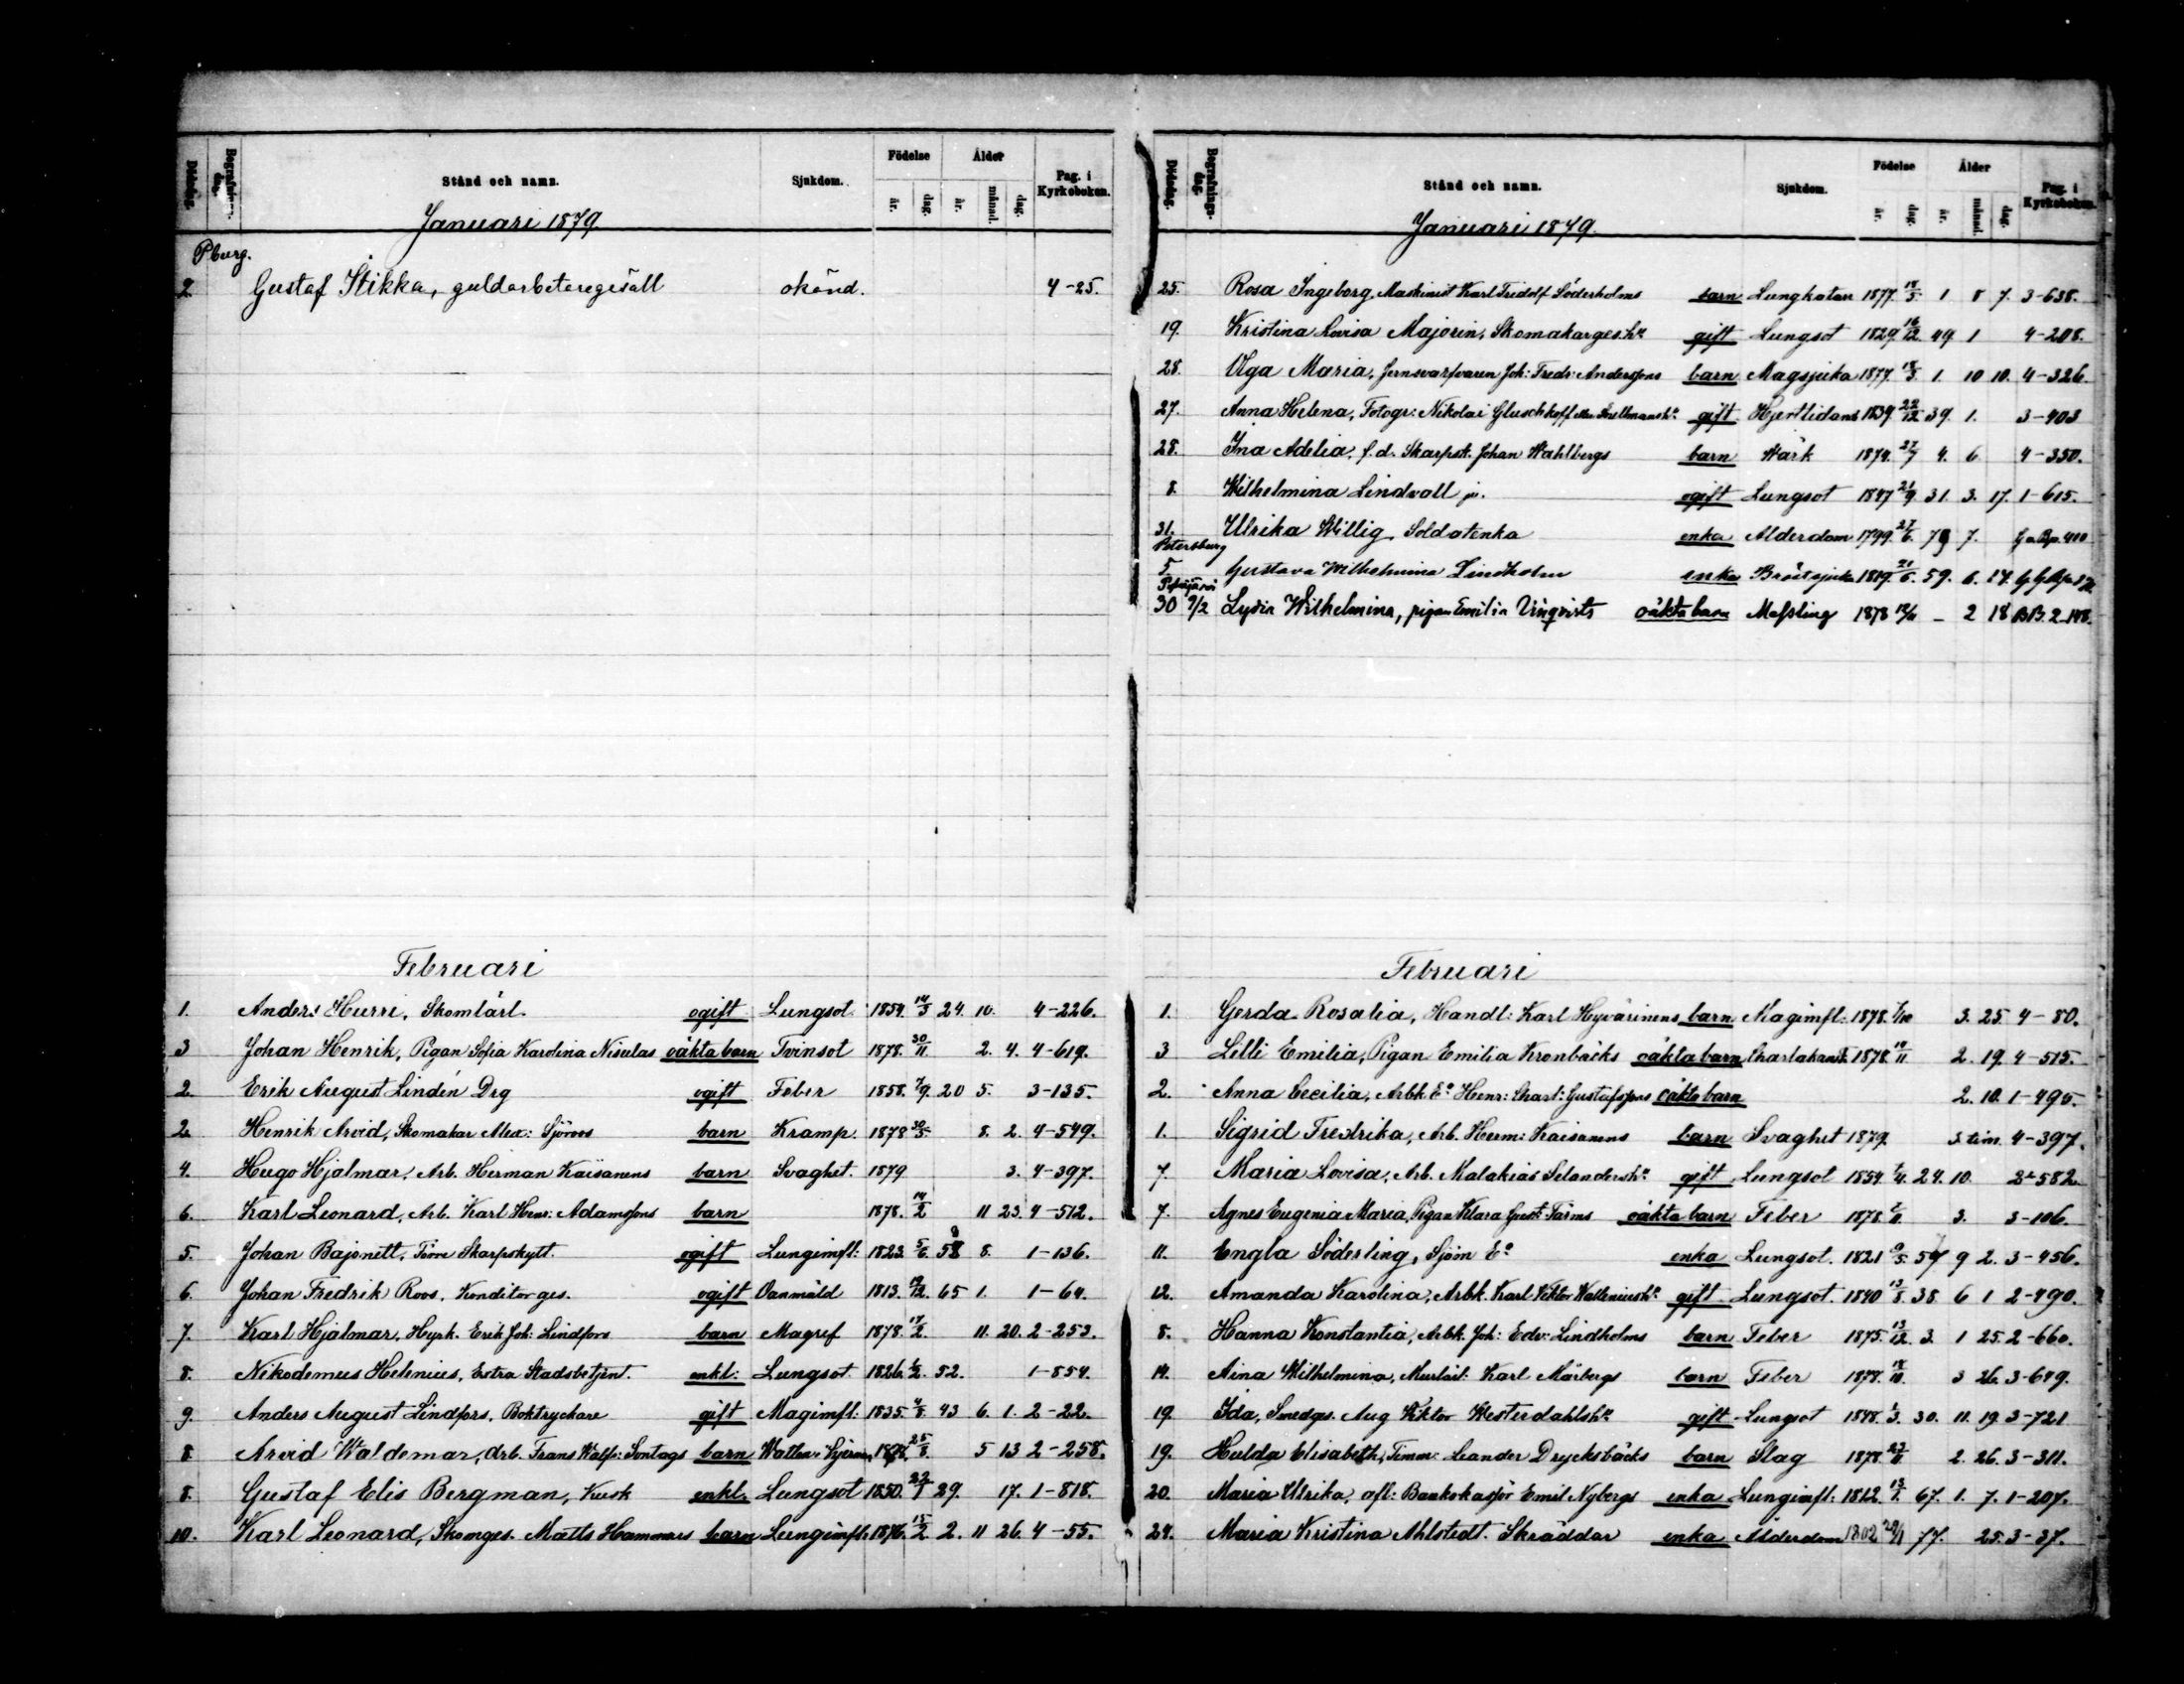 Dödsdag. Begrafnings-dag. Stånd och namn. Sjukdom. Födelse år. dag. Ålder år. månad. dag. Pag. i Kyrkoboken.
Januari 1879
Pburg.
2. Gustaf Stikka, guldarbetaregesäll okänd. 4-25.
Februari
1. Anders Hurri, Skomlärl. ogift Lungsot. 1854. 14/3 24. 10. 4-226.
3 Johan Henrik, Pigan Sofia Karolina Nisulas oäkta barn Tvinsot 1878. 30/11 2. 4. 4-619.
2. Erik August Lindén Drg ogift Feber 1858. 7/9. 20 5. 3-135.
2. Henrik Arvid, Skomakar Alex: Sjöroos barn Kramp. 1878 30/5 8. 2. 4-549.
4. Hugo Hjalmar, Arb. Herman Kaisanens barn Svaghet. 1879 3. 4-397.
6. Karl Leonard, Arb. Karl Henr: Adamssons barn 1878. 14/2 11 23. 4-512.
5. Johan Bajonett, Finne Skarpskytt. ogift Lungimfl: 1823. 5/6. 8. 1-136.
6. Johan Fredrik Roos, Konditorges. ogift Oanmäld 1813. 19/12. 65 1. 1-64.
7. Karl Hjalmar, Hyrk. Erik Joh: Lindfors barn Magref 1878. 17/2. 11. 20. 2-253.
8. Nikodemus Helenius, Extra Stadsbetjent. enkl: Lungsot. 1826. 52. 1-854.
9. Anders August Lindfors, Boktryckare gift Magimfl. 1835. 4/8. 43 6. 1. 2-22.
8. Arvid Waldemar, Arb. Frans Walfr: Sontags barn Watten i Hjernan 25/8. 5 13 2-258.
8. Gustaf Elis Bergman, Kusk enkl. Lungsot 1850. 22/1 29. 17. 1-818.
10. Karl Leonard, Skomges. Matts Hammars barn Lungimfl. 1876. 15/2. 2. 11 26. 4-55.
Dödsdag. Begrafnings-dag. Stånd och namn. Sjukdom. Födelse år. dag. Ålder år. månad. dag. Pag. i Kyrkoboken.
Januari 1879.
25. Rosa Ingeborg, Maskinist Karl Fridolf Söderholms barn Lungkatarr 1877. 18/5. 1 8 7. 3-638.
19. Kristina Lovisa Majorin, Skomakarges. hu gift Lungsot 1829. 16/12. 49. 1 4-208.
28. Olga Maria, Jernsvarfvaren Joh: Fredr: Anderssons barn Magsjuka 1877. 18/3. 1. 10 10. 4-326.
27. Anna Helena, Fotogr: Nikolai Gluschkoff gift Hjertlidande 1839. 22/12 39. 1. 3-403
28. Ina Adelia, f.d. Skarpsk. Johan Wahlbergs barn Wärk 1874. 27/7 4. 6 4-350.
8. Wilhelmina Lindvall ogift Lungsot 1847 21/9. 31. 3. 17. 1-615.
31. Ulrika Willig, Soldatenka enka Alderdom 1799. 27/6. 79 7.
Petersburg
5. Gustava Wilhelmina Lindholm enka Bröstsjuka 1819. 21/6. 59. 6. 14.
30 9/2 Lydia Wilhelmina, pigan Emilia Vinqvists oäkta barn Messling 1878 12/11 - 2 18 BB. 2-148.
Februari
1. Gerda Rosalia, Handl: Karl Hyvärinens barn Magimfl: 1878. 7/10 3. 25. 4-80.
3 Lilli Emilia, Pigan Emilia Kronbäcks oäkta barn 1878. 14/11 2. 19. 4-515.
2. Anna Cecilia, Arbk. Ea Henr: Charl: Gustafssons oäkta barn 2. 10. 1-490.
1. Sigrid Fredrika, Arb. Herm: Kaisanens barn Svaghet 1879. 3 tim. 4-397.
7. Maria Lovisa, Arb. Malakias Selanders hu gift Lungsot 1854 24. 10. 582.
7. Agnes Eugenia Maria, Pigan Klara Gust: Tärms oäkta barn Feber 1878. 3. 3-106.
11. Engla Söderling, Sjöm Ea enka Lungsot. 1821 9/5. 57 9 2. 3-456.
12. Amanda Karolina, Arbk. Karl Viktor Wallenius hu gift Lungsot. 1840 13/8. 38 6 1 2-490.
8. Hanna Konstantia, Arbk. Joh: Edv: Lindholms barn Feber 1875. 13/12. 3. 1 25. 2-660.
14. Aina Wilhelmina, Murlärl: Karl Märbergs barn Feber 1878. 18/10. 3 26. 3-649.
19. Ida, Smedges. Aug Viktor Westerdahls hu gift Lungsot 1848. 1/3. 30. 11. 19. 3-721
19. Hulda Elisabeth, Timm: Leander Drycksbäcks barn Slag 1878. 23/11 2. 26. 3-311.
20. Maria Ulrika, afl: Bankokassör Emil Nybergs enka Lungimfl: 1812. 13/1. 67. 1. 7. 1-207.
24. Maria Kristina Ahlstedt. Skräddar enka Alderdom 1802 29/1 77. 25. 3-37.